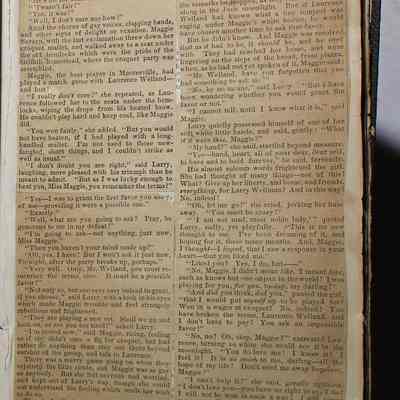 "'Twasn't fair!"
"Yes, it was!"
"Well, I don't care now how!"
Amid the chorus of gay voices, clapping hands,
and other signs of delight or vexation, Maggie
with the last exclamation threw down her
croquet mallet, and walked to a seat under
the old hemlocks which were the pride of the
homestead, where the croquet party was
assembled.
Maggie, the best player in
played a match game with Laurence Welland—
and lost!
"I really don't care!" she repeated, as Lau-
rence followed her to the seats under the hem-
locks, wiping the drops from his heated brow.
He couldn't play hard and keep cool, like Maggie
did.
"You won fairly," she added. "But you would
not have beaten, if I had played with a long-
handled mallet. I'm not used to those new-
fangled, short things, and I couldn't strike as
well as usual."
"I don't doubt you are right," said Larry,
laughing, more pleased with his triumph than he
meant to admit. "But as I was lucky enough to
beat you, Miss Maggie, you remember the terms?"
"Yes—I was to grant the first favor you
of me—providing it were a possible one."
"Exactly."
"Well, what are you going to ask? Pray, be
generous to me in my defeat!"
"I'm going to ask—not anything, just now,
Miss Maggie."
"Then you haven't your mind made up?"
"Ah, yes, I have! But I won't ask it just now.
To-night, after the party breaks up, perhaps."
"Very well. Only, Mr. Welland, you must re-
member the terms, sir. It must be a possible
favor."
"Not only so, but one very easy indeed to grant,
if you choose," said Larry, with a look in his eyes
which made Maggie tremble and feel strangely
rebellious and frightened.
"They are playing a new set. Shall we go and
look on, or are you too tired?" asked Larry.
"I'm tired now," said Maggie, rising, feeling
as if she didn't care a fig for croquet, but had
rather do anything than stay out there beyond
earshot of the group, and talk to Laurence.
There was a merry game going on when they
rejoined the little circle, and Maggie was as gay
as anybody. But she felt nervous and worried,
and kept out of Larry's way, though she could
not understand the feeling which made her wish
to do so.
along in the moonlight. But if Laurence
Welland had known what a tempest was
raging under Maggie's white bonnet, he would
have chosen another time to ask that favor.
But he didn't know. And Maggie was resolved
that as it had to be, it should be, and be done
with. They had reached her home, and were
lingering on the steps of the broad, front piazza,
when, as he had not yet spoken of it, Maggie
"Mr. Welland, have you forgotten that you
had something to ask me?"
"No, by no means," said Larry. "But I have
been wondering whether you would grant the
favor or not."
"I cannot tell, until I know what it is," said
Maggie.
Larry quietly possessed himself of one of her
soft, white little hands, and said, gently: "What
if it were this, Maggie?"
"My hand!" she said, startled beyond measure.
"Yes—hand, heart, all of your dear, dear self,
to have and to hold forever," he said, fervently.
His almost solemn words frightened the girl.
She had thought of many things—not of this!
What! Give up her liberty, and home, and friends,
everything, for Larry Welland! And in this way!
No, indeed!
"Oh, let me go!" she cried, jerking her hand
away. "You must be crazy!"
"I am not mad, most noble lady,'" quoted
Larry, sadly, yet playfully. "This is no new
thought to me. I've been dreaming of it, and
hoping for it, these many months. And, Maggie,
I thought—I hoped, that I saw a response in your
heart—that you liked me."
"Liked you? Yes, I do, but——"
"No, Maggie, I didn't mean like. I meant love,
such as knows but one object in the world! I was
playing for you, for you, to-day, my darling!"
"And did you think, did you," panted the girl,
"that I would put myself up to be played for?
Won in a wager at croquet? No, indeed! You
have broken the terms, Laurence Welland, and
I don't have to pay! You ask an impossible
favor!"
"No, no! Oh, stop, Maggie!" entreated Lau-
rence, turning so white she could see it in the
moonlight. "You do love me! I know it! I
feel it! It is so much to me, darling—all the
hope of my life! Don't send me away hopeless,
Maggie!"
"I can't help it!" she said, greatly agitated.
"I don't love you—you have no right
I will not be won in such a way